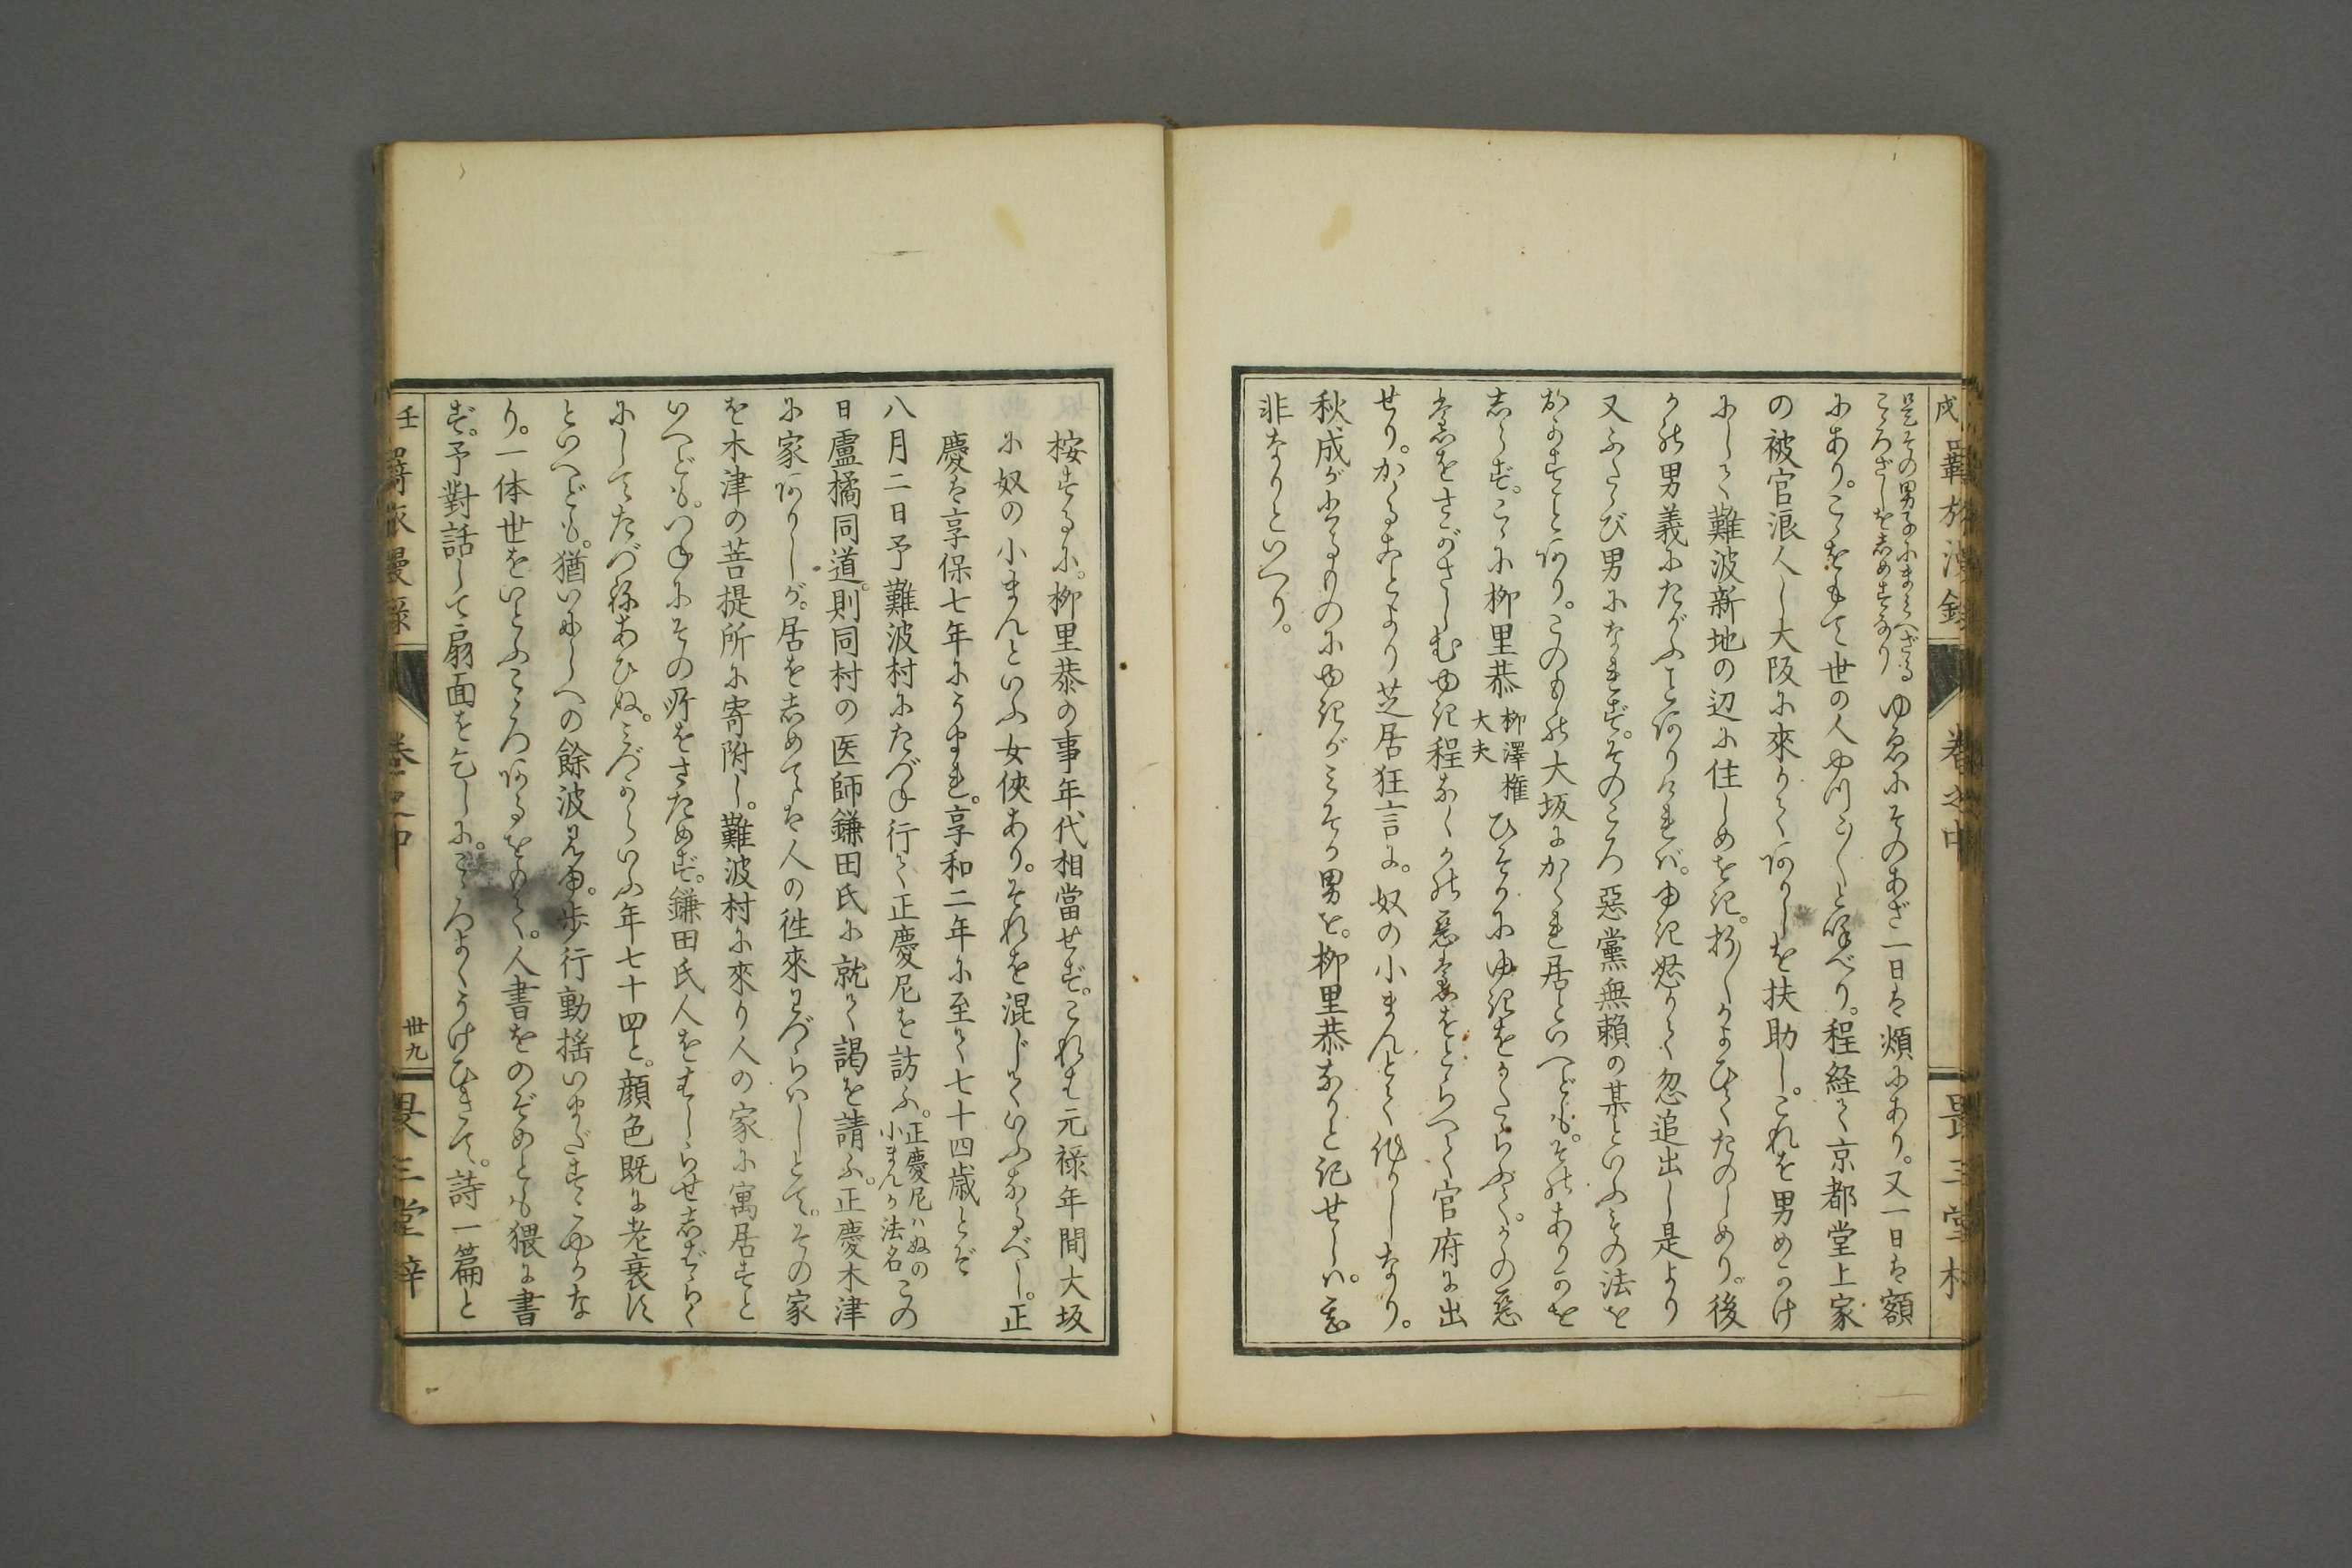 戌 羇旅漫録 巻之中 畏三堂梓
是その男子にまみへざる
こゝろざしをしめすなり
ゆゑにそのあざ一日は頬にあり。又一日は額
にあり。こゝをもて世の人やつこ〳〵と呼べり。程経て京都堂上家
の被官浪人し大阪に來りてありしを扶助し。これを男めかけ
にして難波新地の辺に住しめをき。折〳〵かよひてたのしめり。後
かの男義にたがふことありければ。ゆき怒りて忽追出し是より
又ふたゝび男になれず。そのころ惡黨無頼の某といふもの法を
おかすことあり。このもの大坂にかくれ居といへども。そのありかを
しらず。こゝに柳里恭
柳澤権
大夫
ひそかにゆきをかたらふて。かの惡
黨をさがさしむゆき程なくかの惡黨をとらへて官府に出
せり。かゝることより芝居狂言に。奴の小まんとて作りしなり。
秋成がものにゆきがみそか男を。柳里恭なりと記せしは。
非なりといへり。
桉ずるに。柳里恭の事年代相當せず。これは元禄年間大坂
に奴の小まんといふ女侠あり。それを混じていふなるべし。正
慶は享保七年にうまれ。享和二年に至て七十四歳とぞ
八月二日予難波村にたづね行て正慶尼を訪ふ。
正慶尼ハ奴の
小まんが法名
この
日盧橘同道。則同村の医師鎌田氏に就て謁を請ふ。正慶木津
に家ありしが。居をしめては人の徃來わづらはしとて。その家
を木津の菩提所に寄附し。難波村に來り人の家に寓居すと
いへども。つねにその所をさだめず。鎌田氏人をはしらせしばらく
にしてたづねあひぬ。みづからいふ年七十四と。顔色既に老衰す
といへども。猶いにしへの餘波見ゆ。歩行動揺いまだすこやかな
り。一体世をいとふこゝろあるをもて。人書をのぞめども猥に書
ず。予對話して扇面を乞しに。こゝろよくうけひきて。詩一篇と
壬 羇旅漫録 巻之中 丗九 畏三堂梓